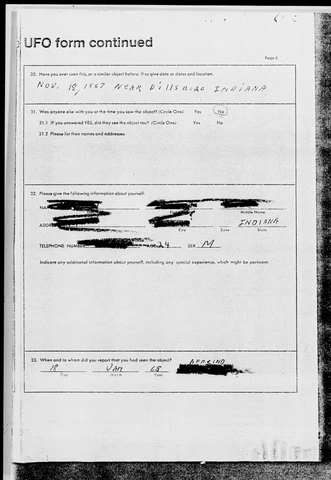 UFO form continued
Page 6
30. Have you ever seen this, or a similar object before. If so give date or dates and location.
NOV. 18, 1967 NEAR DILLSBORO INDIANA
31. Was anyone else with you at the time you saw the object? (Circle One) Yes No
31.1 If you answered YES, did they see the object too? (Circle One) Yes No
31.2 Please list their names and addresses:
32. Please give the following information about yourself:
Middle Name
INDIANA
City Zone State
TELEPHONE NUMBER 24 SEX M
Indicate any additional information about yourself, including any special experience, which might be pertinent.
33. When and to whom did you report that you had seen the object?
18 JAN 68
Day Month Year